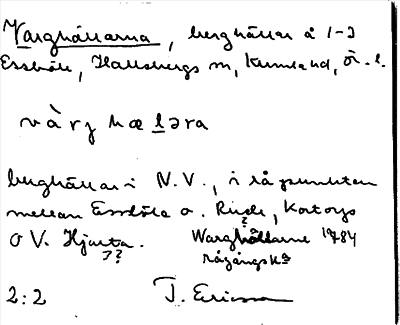 Varghällarna, berghällar å 1-3
Essböle, Hallsbergs sn, Kumla hd, Ör. l.
vàrj hæ l ə ra
berghällar i N.V., i råpunkten
mellan Essböle o.
o V. Hjorta. ?? Warghällarne 1784
rågångsK
2:2 T. Ericsson